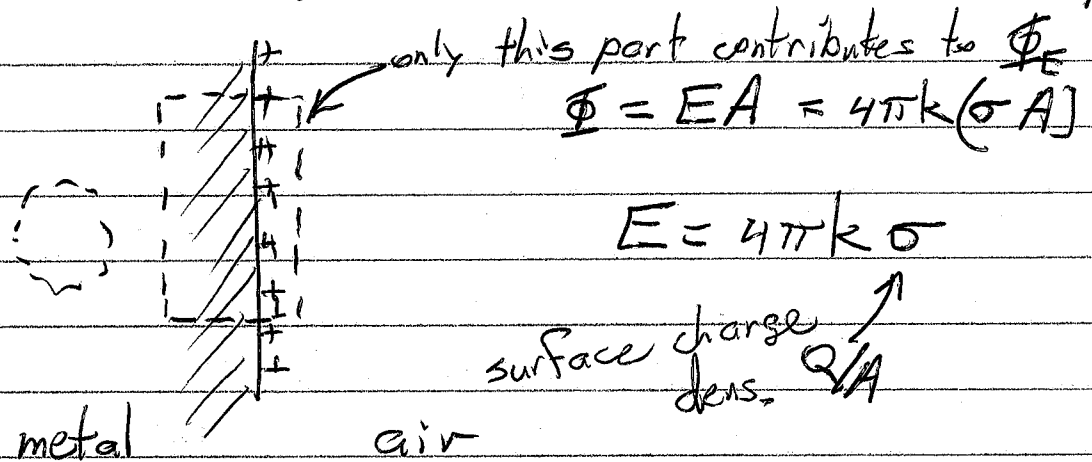 only this part contributes to Φ_E
Φ = EA = 4πk(σA]
E = 4πkσ
surface charge dens. Q/A
metal air